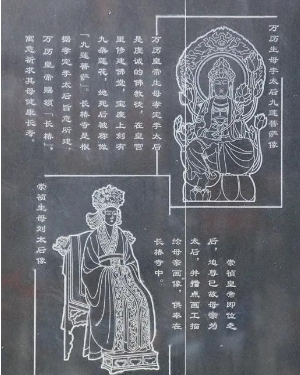 万历生母李太后九莲菩萨像
万历皇帝生母孝定李太后
是虔诚的佛教徒，在皇宫
里修建佛堂，宝座上刻有
九朵莲花，她死后被称做
「九莲菩萨」。长椿寺是根
据孝定李太后旨意所建，
万历皇帝赐额「长椿」。
寓意祈求其母健康长寿。
崇祯皇帝即位之
后，追尊已故母亲为
太后，并指点画工描
绘母亲画像，供奉在
长椿寺中。
崇祯生母刘太后像